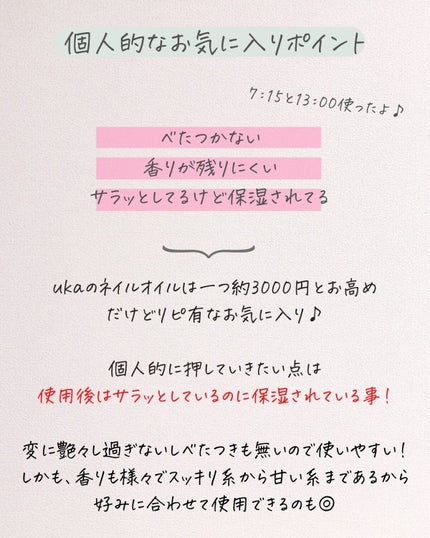 個人的なお気に入りポイント
7:15と13:00使ったよ♪
べたつかない
香りが残りにくい
サラッとしてるけど保湿されてる
ukaのネイルオイルは一つ約3000円とお高め
だけどリピ有なお気に入り♪
個人的に押していきたい点は
使用後はサラッとしているのに保湿されている事!
変に艶々し過ぎないしべたつきも無いので使いやすい!
しかも、香りも様々でスッキリ系から甘い系まであるから
好みに合わせて使用できるのも◎